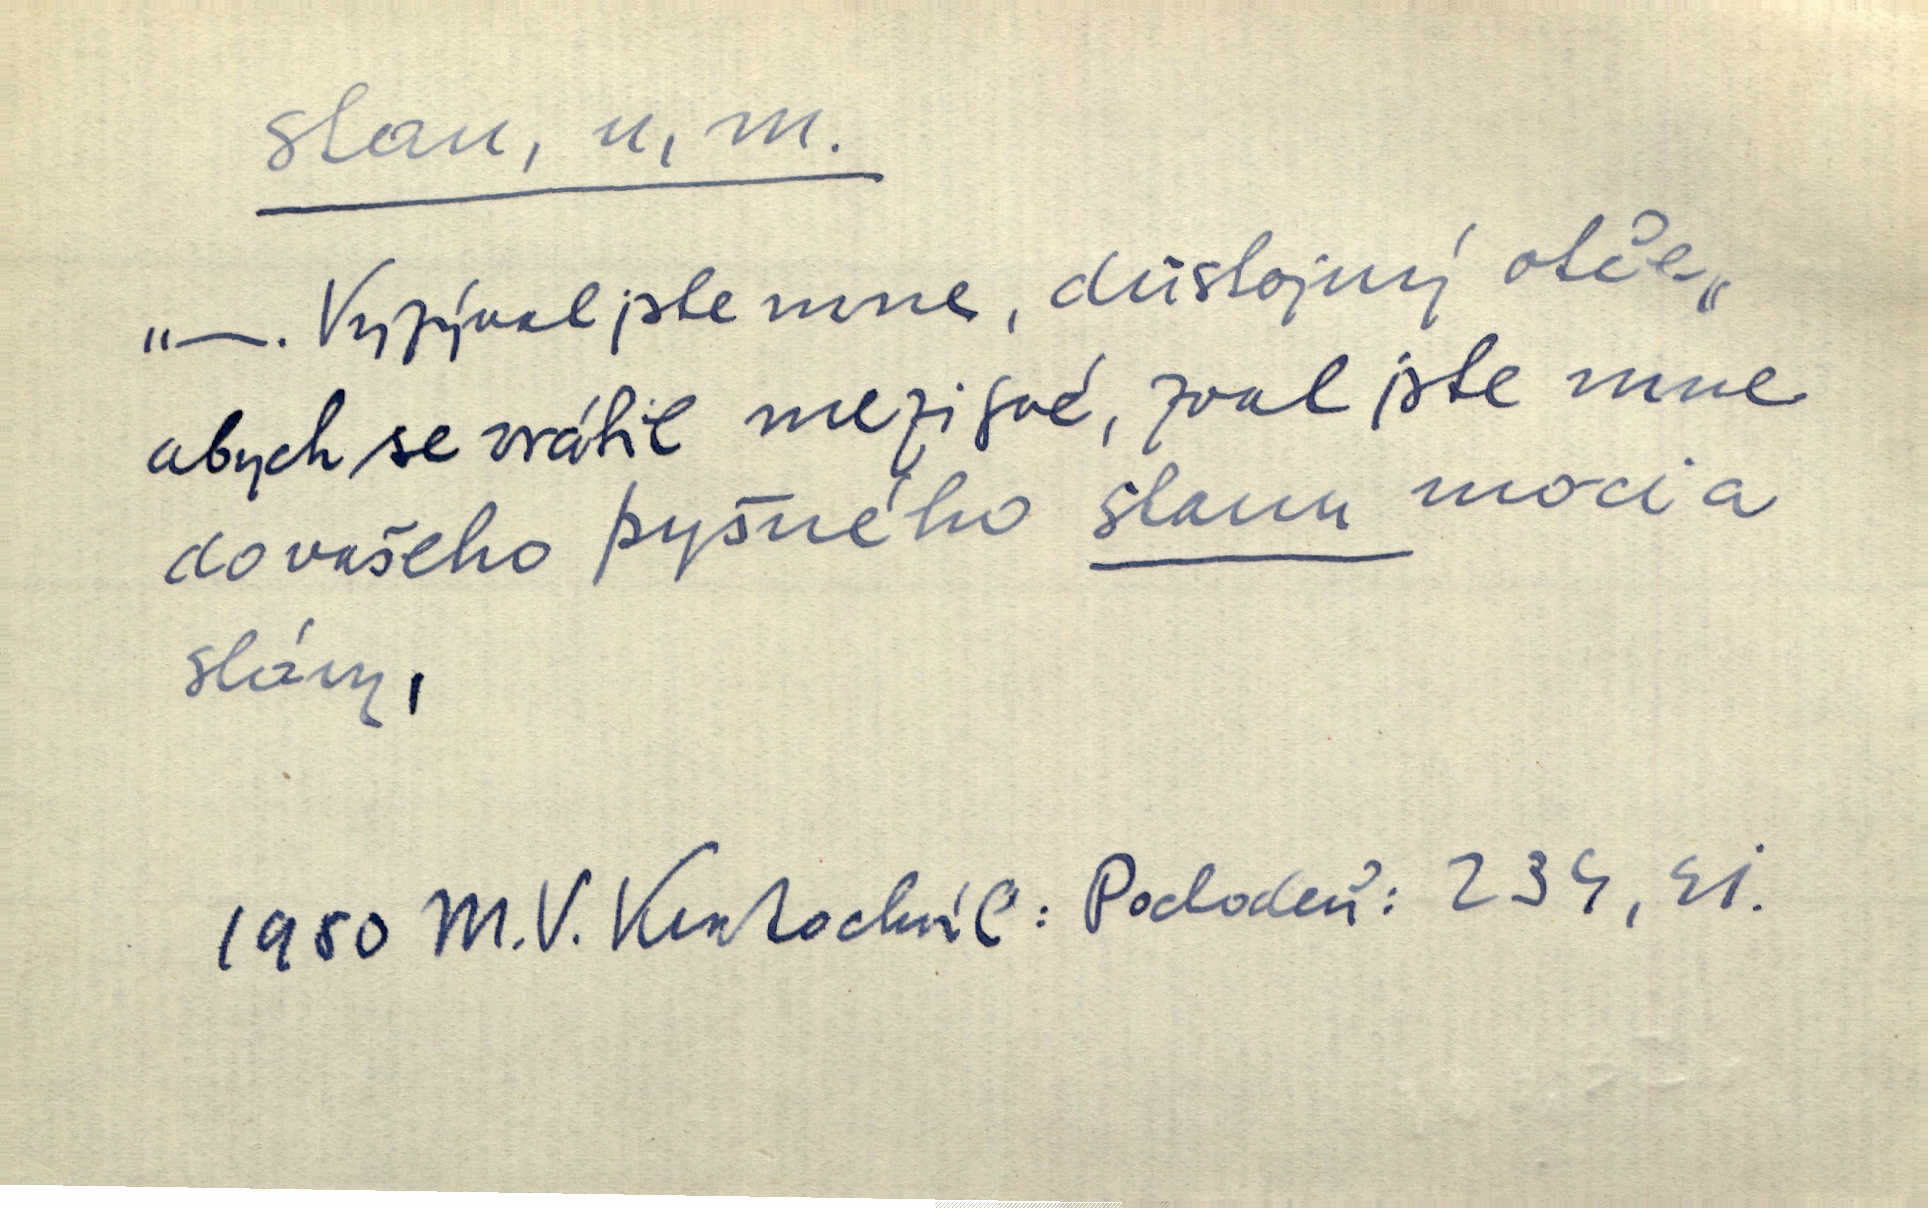 stan, u, m.
„—. Vyzýval jste mne, důstojný otče„
abych se vrátil mezi své, zval jste mne
do vašeho pyšného stanu moci a
slávy,
1950 M.V. Kratochvíl: Pochodeň: 234,